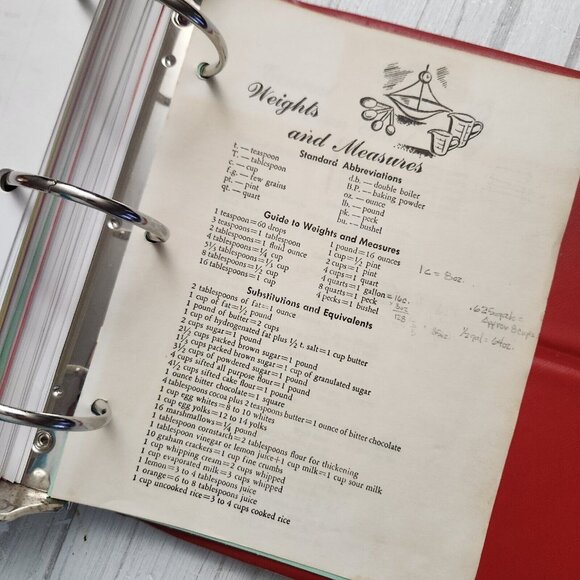 Weights
and Measures
Standard Abbreviations
t. — teaspoon
T. — tablespoon
c. — cup
f.g. — few grains
pt. — pint
qt. — quart
d.b. — double boiler
B.P. — baking powder
oz. — ounce
lb. — pound
pk. — peck
bu. — bushel
Guide to Weights and Measures
1 teaspoon=60 drops
3 teaspoons=1 tablespoon
2 tablespoons=1 fluid ounce
4 tablespoons=¼ cup
5⅓ tablespoons=⅓ cup
8 tablespoons=½ cup
16 tablespoons=1 cup
1 pound=16 ounces
1 cup=½ pint
2 cups=1 pint
4 cups=1 quart
4 quarts=1 gallon=16c.
8 quarts=1 peck
4 pecks=1 bushel
1c = 8oz.
8oz
128
½gal = 64oz.
Substitutions and Equivalents
2 tablespoons of fat=1 ounce
1 cup of fat=½ pound
1 pound of butter=2 cups
1 cup of hydrogenated fat plus ½ t. salt=1 cup butter
2 cups sugar=1 pound
2½ cups packed brown sugar=1 pound
1⅓ cups packed brown sugar=1 cup of granulated sugar
3½ cups of powdered sugar=1 pound
4 cups sifted all purpose flour=1 pound
4½ cups sifted cake flour=1 pound
1 ounce bitter chocolate=1 square
4 tablespoons cocoa plus 2 teaspoons butter=1 ounce of bitter chocolate
1 cup egg whites=8 to 10 whites
1 cup egg yolks=12 to 14 yolks
16 marshmallows=¼ pound
1 tablespoon cornstarch=2 tablespoons flour for thickening
1 tablespoon vinegar or lemon juice+1 cup milk=1 cup sour milk
10 graham crackers=1 cup fine crumbs
1 cup whipping cream=2 cups whipped
1 cup evaporated milk=3 cups whipped
1 lemon=3 to 4 tablespoons juice
1 orange=6 to 8 tablespoons juice
1 cup uncooked rice=3 to 4 cups cooked rice